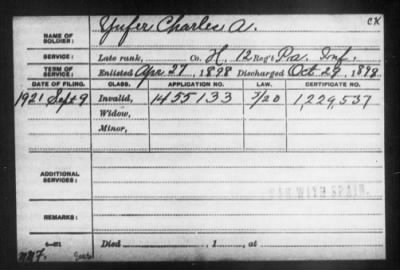 Yufer Charles A. CK
NAME OF SOLDIER:
SERVICE: Late rank, Co. H, 12 Reg't Pa. Inf.
TERM OF SERVICE: Enlisted Apr 27, 1898 Discharged Oct. 29, 1898
DATE OF FILING. CLASS. APPLICATION NO. LAW. CERTIFICATE NO.
1921 Sept 9 Invalid, 1455133 3/20 1,229,537
Widow,
Minor,
ADDITIONAL SERVICES:
REMARKS:
Died , 1 , at